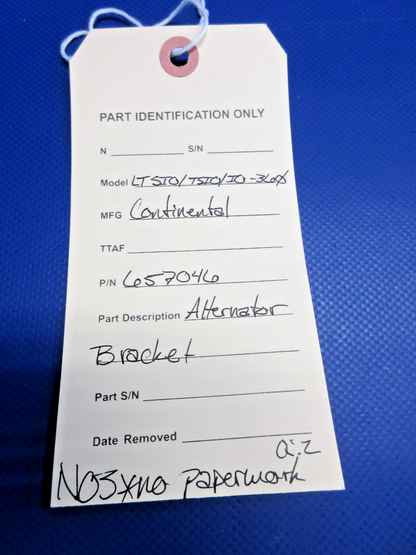 PART IDENTIFICATION ONLY
N ____________ S/N ____________
Model LTSIO/TSIO/IO-360
MFG Continental
TTAF ____________
P/N 657046
Part Description Alternator
Bracket
Part S/N ____________
Date Removed ____________
no paperwork